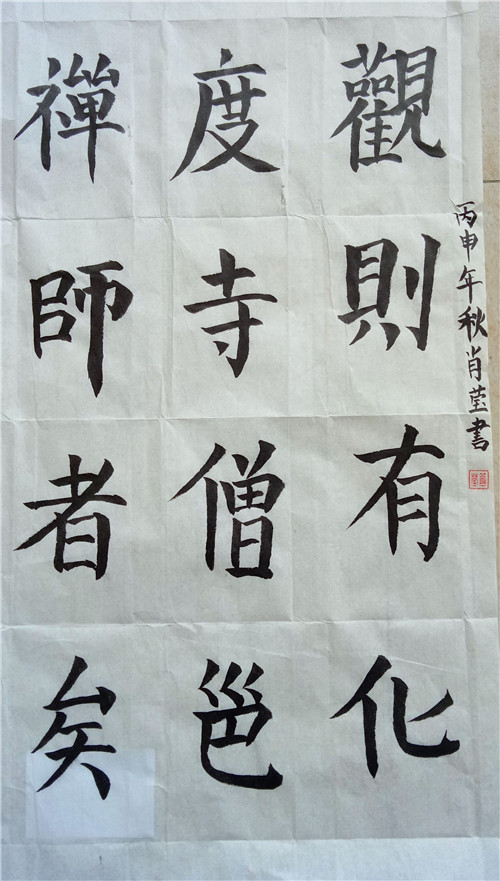 觀則有化
度寺僧邕
禪師者矣
丙申年秋肖莹書